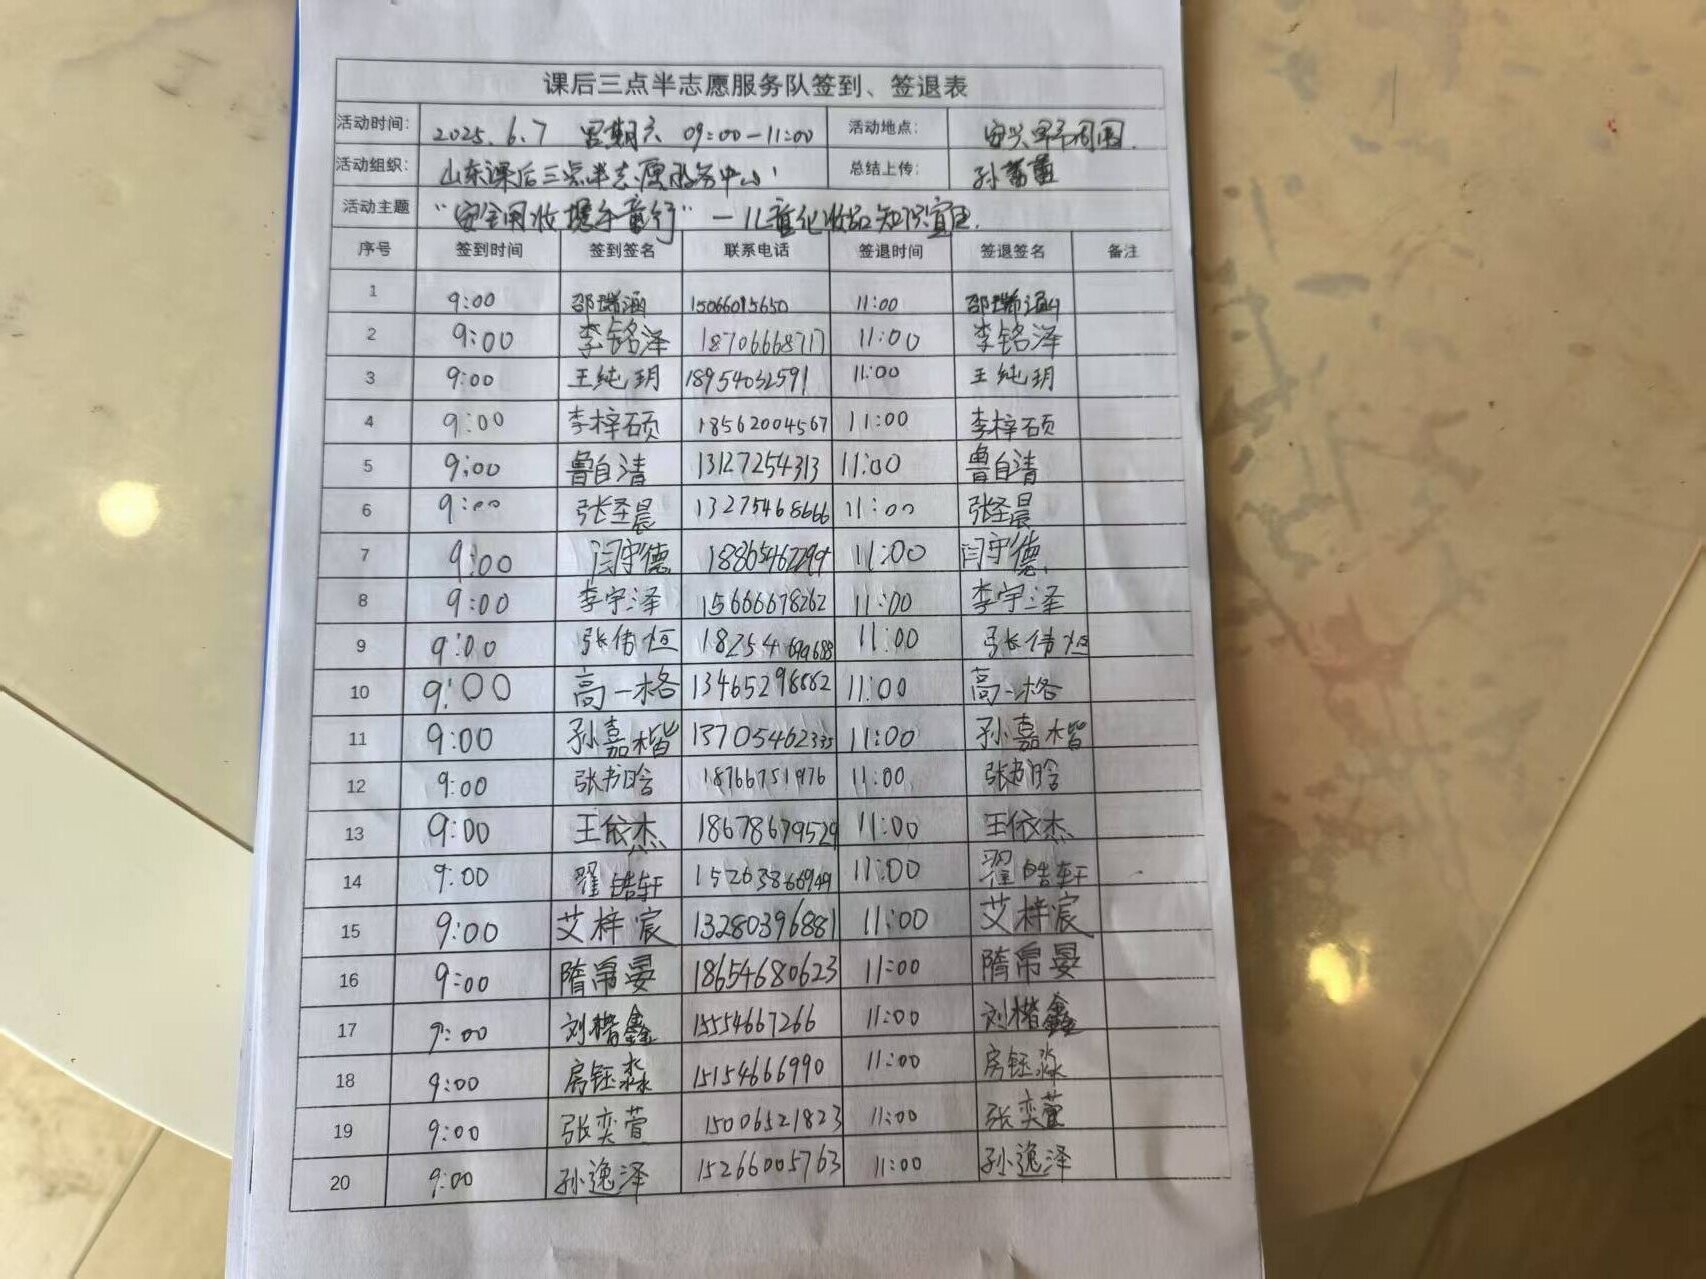 课后三点半志愿服务队签到、签退表
活动时间: 2025.6.7 星期六 09:00-11:00 活动地点:
活动组织: 山东课后三点半志愿服务中心 总结上传: 孙蕾蕾
活动主题 "安全用妆 携手童行" — 儿童化妆品知识宣
序号 签到时间 签到签名 联系电话 签退时间 签退签名 备注
1 9:00 邵瑞涵 15066015650 11:00 邵瑞涵
2 9:00 李铭泽 18706668717 11:00 李铭泽
3 9:00 王纯玥 18954032591 11:00 王纯玥
4 9:00 李梓硕 18562004567 11:00 李梓硕
5 9:00 鲁自清 13127254313 11:00 鲁自清
6 9:00 张圣晨 13275468666 11:00 张圣晨
7 9:00 闫守德 11:00 闫守德
8 9:00 李宇泽 15666678262 11:00 李宇泽
9 9:00 张倩恒 18254699688 11:00 张倩恒
10 9:00 高一格 13465298882 11:00 高一格
11 9:00 孙嘉楷 13705462335 11:00 孙嘉楷
12 9:00 张书晗 18766751976 11:00 张书晗
13 9:00 王依杰 18678679529 11:00 王依杰
14 9:00 翟皓轩 15263866949 11:00 翟皓轩
15 9:00 艾梓宸 13280396881 11:00 艾梓宸
16 9:00 隋帛晏 18654680623 11:00 隋帛晏
17 9:00 刘楷鑫 15554667266 11:00 刘楷鑫
18 9:00 房钰淼 15154666990 11:00 房钰淼
19 9:00 张奕萱 15006521823 11:00 张奕萱
20 9:00 孙逸泽 15266005763 11:00 孙逸泽